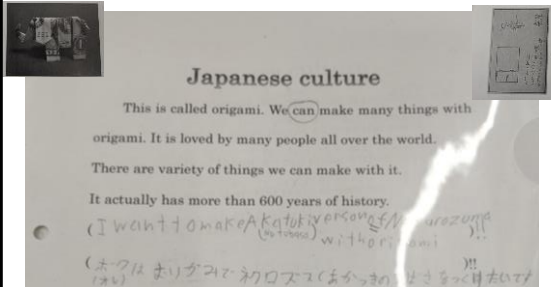 Japanese culture
This is called origami. We can make many things with
origami. It is loved by many people all over the world.
There are variety of things we can make with it.
It actually has more than 600 years of history.
(I want to make Akatuki version of N urozuma
with origami )!!
(ボクは おりがみで ネクロズマ(あかつきの